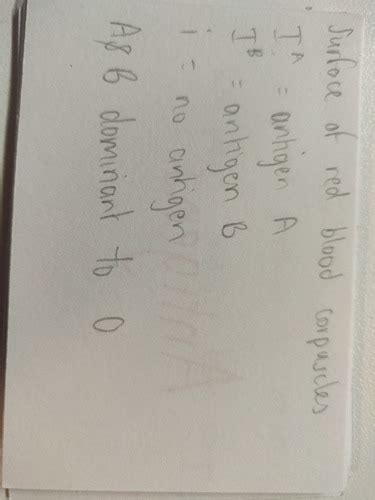 Surface of red blood corpuscles
Iᴬ = antigen A
Iᴮ = antigen B
i = no antigen
A & B dominant to O